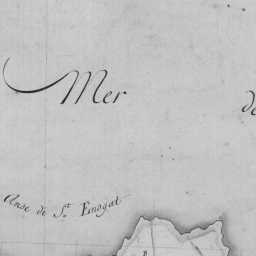 Mer de
Anse de S.t Enogat